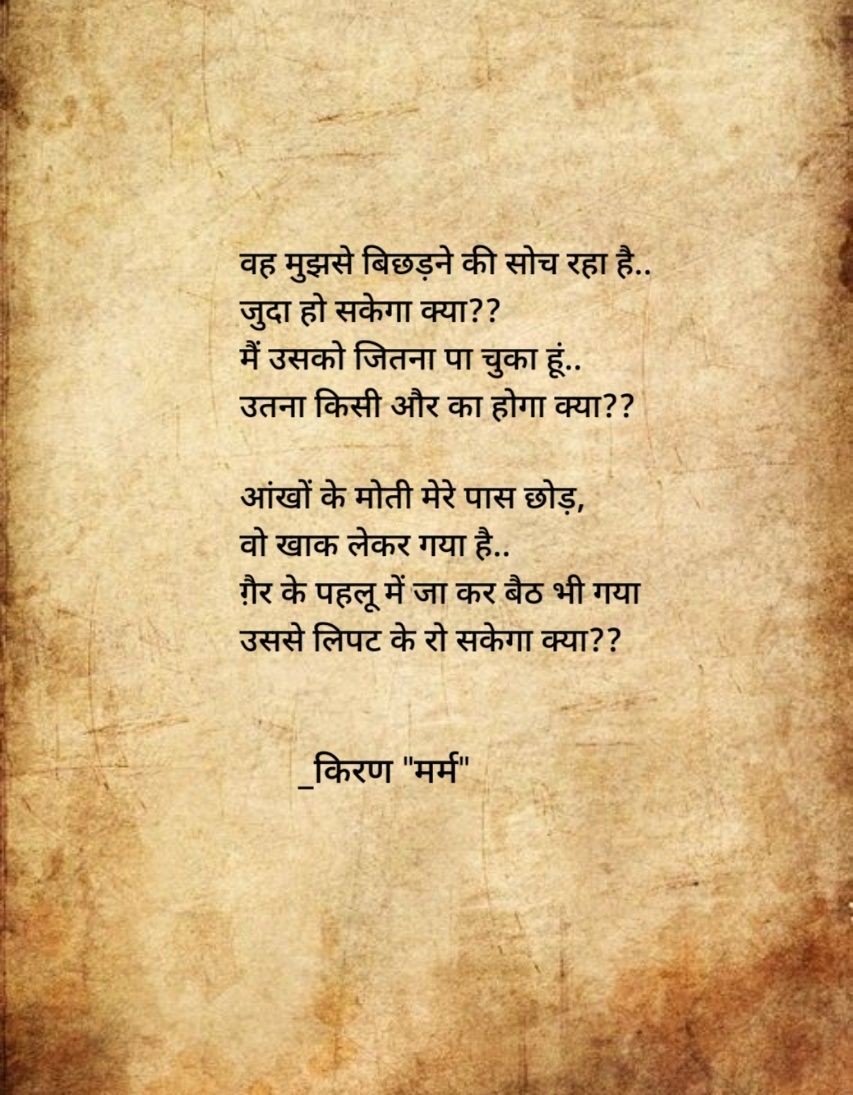 वह मुझसे बिछड़ने की सोच रहा है..
जुदा हो सकेगा क्या??
मैं उसको जितना पा चुका हूं..
उतना किसी और का होगा क्या??
आंखों के मोती मेरे पास छोड़,
वो खाक लेकर गया है..
ग़ैर के पहलू में जा कर बैठ भी गया
उससे लिपट के रो सकेगा क्या??
_किरण "मर्म"